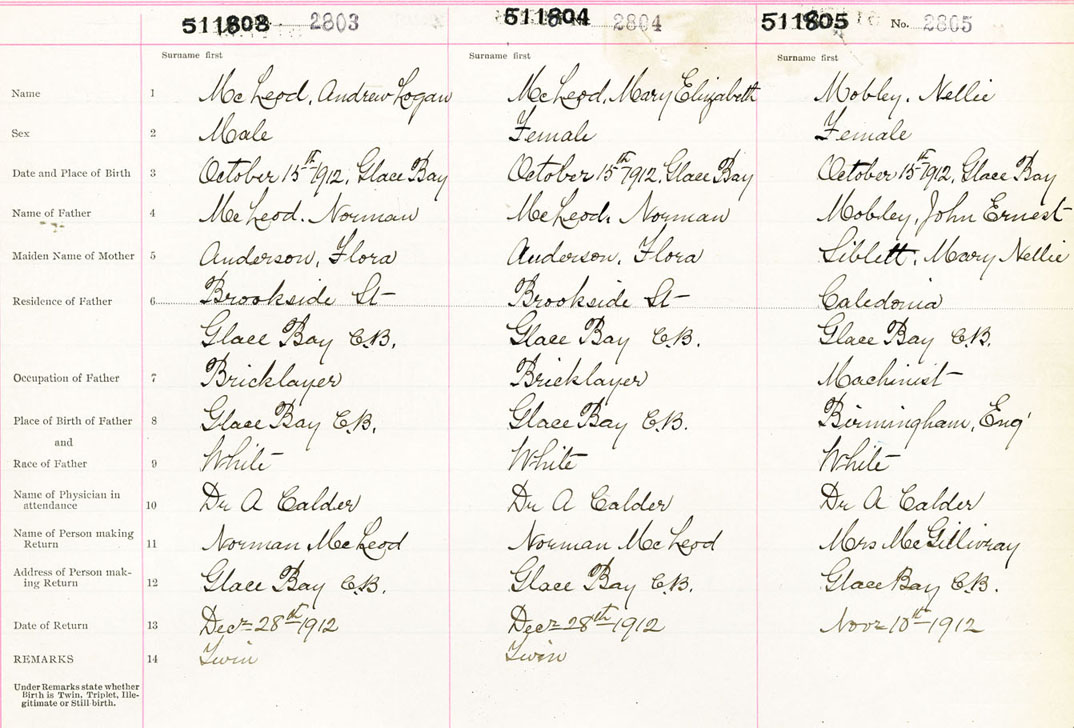 511803 2803 511804 2804 511805 No. 2805
Surname first Surname first Surname first
Name 1 McLeod, Andrew Logan McLeod, Mary Elizabeth Mobley, Nellie
Sex 2 Male Female Female
Date and Place of Birth 3 October 15th 1912, Glace Bay October 15th 1912, Glace Bay October 15th 1912, Glace Bay
Name of Father 4 McLeod, Norman McLeod, Norman Mobley, John Ernest
Maiden Name of Mother 5 Anderson, Flora Anderson, Flora Siblett, Mary Nellie
Residence of Father 6 Brookside St Brookside St Caledonia
Glace Bay C.B. Glace Bay C.B. Glace Bay C.B.
Occupation of Father 7 Bricklayer Bricklayer Machinist
Place of Birth of Father 8 Glace Bay C.B. Glace Bay C.B. Birmingham, Eng'
and
Race of Father 9 White White White
Name of Physician in
attendance 10 Dr A Calder Dr A Calder Dr A Calder
Name of Person making
Return 11 Norman McLeod Norman McLeod Mrs McGillivray
Address of Person mak-
ing Return 12 Glace Bay C.B. Glace Bay C.B. Glace Bay C.B.
Date of Return 13 Decr 28th 1912 Decr 28th 1912 Novr 10th 1912
REMARKS 14 Twin Twin
Under Remarks state whether
Birth is Twin, Triplet, Ille-
gitimate or Still-birth.